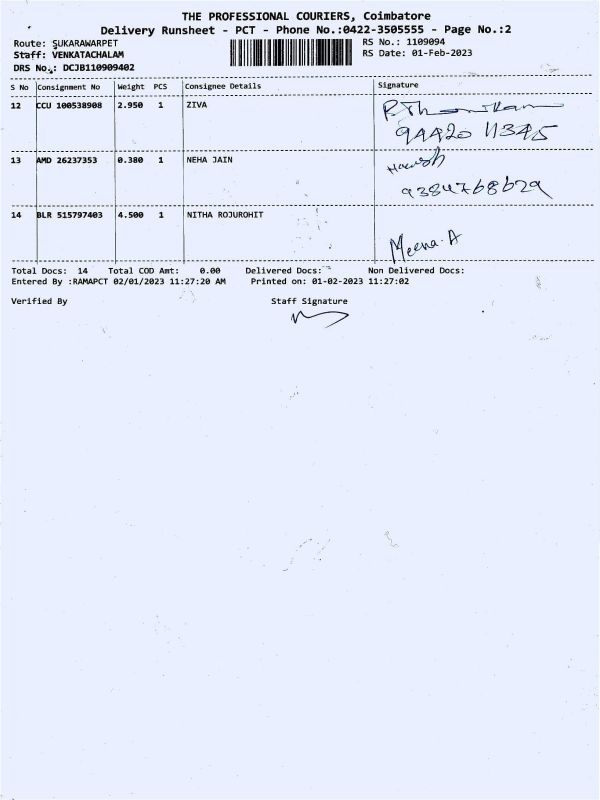 THE PROFESSIONAL COURIERS, Coimbatore
Delivery Runsheet - PCT - Phone No.:0422-3505555 - Page No.:2
Route: SUKARAWARPET
RS No.: 1109094
Staff: VENKATACHALAM
RS Date: 01-Feb-2023
DRS No.: DCJB110909402
S No Consignment No Weight PCS Consignee Details Signature
12 CCU 100538908 2.950 1 ZIVA
94420 11345
13 AMD 26237353 0.380 1 NEHA JAIN
9384768629
14 BLR 515797403 4.500 1 NITHA ROJUROHIT
Meena.A
Total Docs: 14 Total COD Amt: 0.00 Delivered Docs: Non Delivered Docs:
Entered By :RAMAPCT 02/01/2023 11:27:20 AM Printed on: 01-02-2023 11:27:02
Verified By Staff Signature